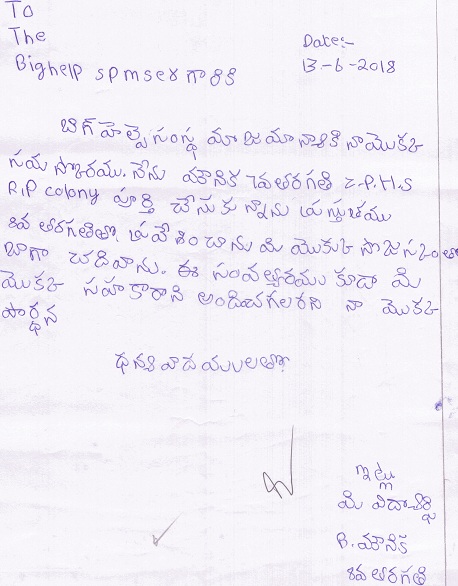 To
The
Bighelp spmser గారికి
Date:-
13-6-2018
బిగ్ హెల్ప్ సంస్థ మా యాజమాన్యానికి నా యొక్క
నమస్కారము. నేను మౌనిక 7వ తరగతి Z.P.H.S
R.P colony పూర్తి చేసుకున్నాను ప్రస్తుతము
8వ తరగతిలో ప్రవేశించాను మీ యొక్క ప్రోత్సాహంతో
బాగా చదివాను. ఈ సంవత్సరము కూడా మీ
యొక్క సహకారాని అందించగలరని నా యొక్క
ప్రార్థన
ధన్యవాదములతో
ఇట్లు
మీ విద్యార్థి
B. మౌనిక
8వ తరగతి